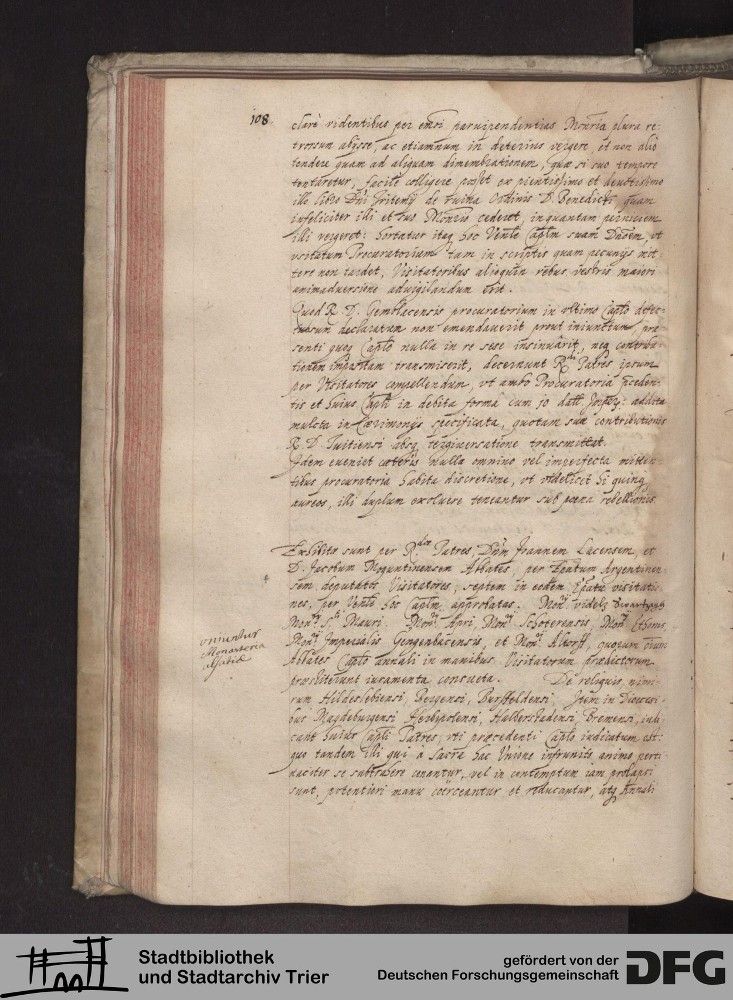 108.
clarè videntibus per emsi parvipendentias Monria plura re-
trorsum abiisse, ac etiamnum in deterius vergere, et non alio
tendere quam ad aliquam dimembrationem, quæ si suo tempore
tentaretur, facile colligere posset ex pientissimo et devotissimo
illo libro Dñi Tritemij de ruina Ordinis D. Benedicti, quam
infeliciter illi et suo Monrio cederet, in quantam perniciem
illi vergeret: hortatur itaq hoc Venle Caplm suam Dnoem, ut
usitatum Procuratorium tam in scriptis quam pecunijs mit-
tere non tardet, Visitatoribus alioquin rebus vestris maiori
animadversione advigilandum erit.
Quod R. D. Gemblacensis procuratorium in ultimo Caplo defec-
tuosum declaratum non emendaverit prout iniunctum, præ-
senti quoq Caplo nulla in re sese insinuârit, neq contribu-
tionem impositam transmiserit, decernunt Rdi Patres ipsum
per Visitatores compellendum, ut ambo Procuratoria præceden-
tis et huius Capli in debita formâ cum addita
mulcta in Cærimonijs specificata, quotam suæ contributionis
R. D. Tuitiensi absq tergiversatione transmittat.
Idem eveniet cæteris nulla omnino vel imperfecta mitten-
tibus procuratoria habita discretione, ut videlicet hi quinq
aureos, illi duplum exolvere teneantur sub pœna rebellionis.
Exhibitæ sunt per Rdos Patres, Dñm Joannem Lacensem, et
D. Jacobum Moguntinensem Abbates, per Epatum Argentinen-
sem deputatos Visitatores, septem in eodem Epatu visitatio-
nes, per Venle hoc Caplm approbatas. Monrij videlt
Monrij Sti Mauri. Monrij Apri, Monrij Schoterensis, Monrij Ethoms
Monrij Imperialis Gengenbacensis, et Monrij Altorff, quorum oium
Abbates Caplo annali in manibus Visitatorum prædictorum
præstiterunt iuramenta consueta. De reliquis, nimi-
rum Hildeslebiensi, Bergensi, Bursfeldensi, Item in Diœcesi-
bus Magdeburgensi Herbipolensi, Halberstadensi, Bremensi, iudi-
cant huius Capli Patres, uti præcedenti Caplo iudicatum est:
quo tandem illi qui a sacra hac Unione infrunito animo perti-
naciter se subtrahere conantur, vel in contemptum iam prolapsi
sunt, potentiori manu coërceantur et reducantur, atq Annali
uniuntur
Monasteria
Alsatiæ
Stadtbibliothek
und Stadtarchiv Trier
gefördert von der
Deutschen Forschungsgemeinschaft
DFG